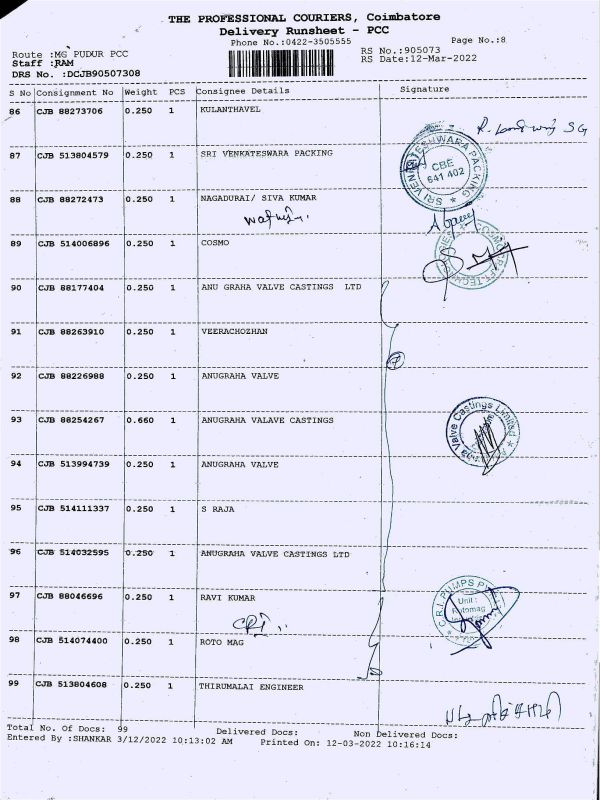 THE PROFESSIONAL COURIERS, Coimbatore
Delivery Runsheet - PCC
Phone No.:0422-3505555 Page No.:8
Route :MG PUDUR PCC RS No.:905073
Staff :RAM RS Date:12-Mar-2022
DRS No. :DCJB90507308
S No Consignment No Weight PCS Consignee Details Signature
86 CJB 88273706 0.250 1 KULANTHAVEL
87 CJB 513804579 0.250 1 SRI VENKATESWARA PACKING
SRI VENKATESHWARA PACKING
CBE
641 402
88 CJB 88272473 0.250 1 NAGADURAI/ SIVA KUMAR
89 CJB 514006896 0.250 1 COSMO
90 CJB 88177404 0.250 1 ANU GRAHA VALVE CASTINGS LTD
91 CJB 88263910 0.250 1 VEERACHOZHAN
7
92 CJB 88226988 0.250 1 ANUGRAHA VALVE
93 CJB 88254267 0.660 1 ANUGRAHA VALAVE CASTINGS
Valve Castings Limited
94 CJB 513994739 0.250 1 ANUGRAHA VALVE
95 CJB 514111337 0.250 1 S RAJA
96 CJB 514032595 0.250 1 ANUGRAHA VALVE CASTINGS LTD
97 CJB 88046696 0.250 1 RAVI KUMAR
CRI
C.R.I. PUMPS
Unit :
Rotomag
98 CJB 514074400 0.250 1 ROTO MAG
99 CJB 513804608 0.250 1 THIRUMALAI ENGINEER
Total No. Of Docs: 99 Delivered Docs: Non Delivered Docs:
Entered By :SHANKAR 3/12/2022 10:13:02 AM Printed On: 12-03-2022 10:16:14